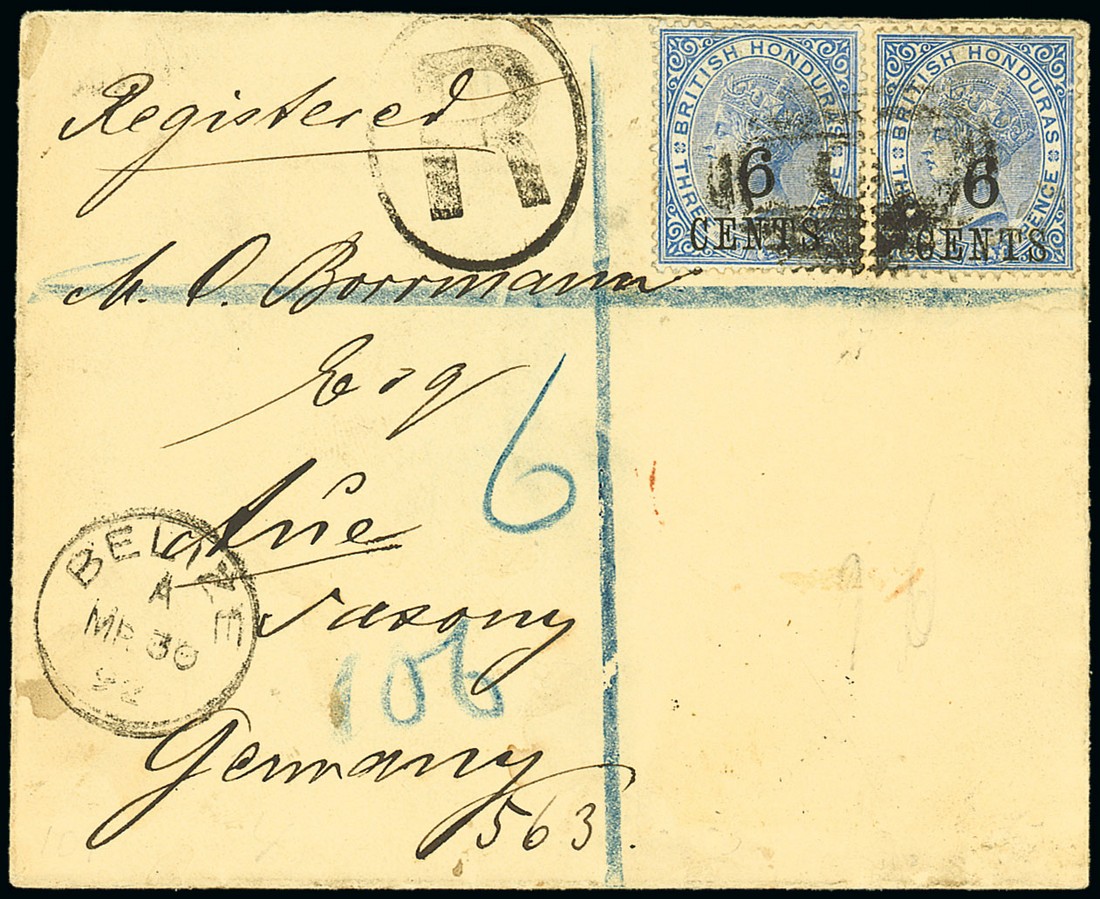 Registered
R
BRITISH HONDURAS
THREE PENCE
6
CENTS
BRITISH HONDURAS
THREE PENCE
6
CENTS
M. O. Borrmann
Esq
6
Aue
Saxony
BELIZE
A
MR 30
92
106
Germany
563.